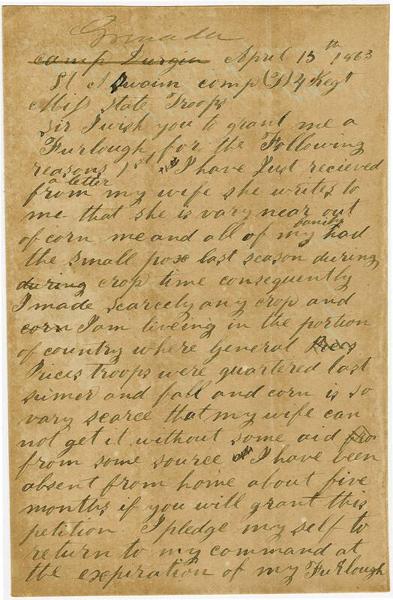 Grenada
Camp Durgin April 15th 1863
Lt A Swain comp (D) 4 Regt
Miss State Troops
Sir I wish you to grant me a
Furlough for the Following
reasons 1st I have Just recieved
a letter
from my wife she writes to
me that she is vary near out
of corn me and all of my family had
the small pox last season during
during crop time consequently
I made scarcely any crop and
corn I am liveing in the portion
of country where General
Prices troops were quartered last
sumer and fall and corn is so
vary scarce that my wife can
not get it without some aid
from some source I have been
absent from home about five
months if you will grant this
petition I pledge my self to
return to my command at
the expiration of my Furlough